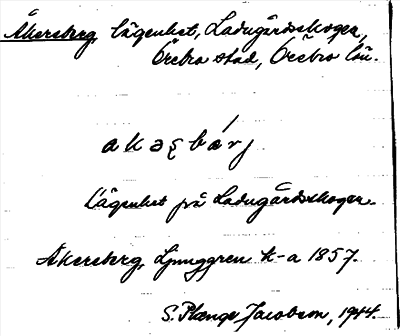 Åkersberg, lägenhet, Ladugårdsskogen,
Örebro stad, Örebro län.
akəʂbærj
Lägenhet på Ladugårdsskogen.
Åkersberg, Ljunggren k-a 1857.
S. Plænge Jacobson, 1944.